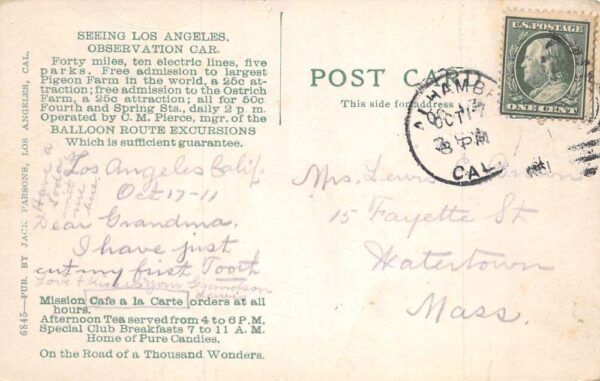 SEEING LOS ANGELES.
OBSERVATION CAR.
Forty miles, ten electric lines, five
parks. Free admission to largest
Pigeon Farm in the world, a 25c at-
traction; free admission to the Ostrich
Farm, a 25c attraction; all for 50c.
Fourth and Spring Sts., daily 2 p. m.
Operated by C. M. Pierce, mgr. of the
BALLOON ROUTE EXCURSIONS
Which is sufficient guarantee.
Los Angeles Calif.
Oct 17-11
Dear Grandma,
I have just
cut my first Tooth
Love & kisses your Grandson
Lewis
Have a
me
here
Mission Cafe a la Carte orders at all
hours.
Afternoon Tea served from 4 to 6 P.M.
Special Club Breakfasts 7 to 11 A. M.
Home of Pure Candies.
On the Road of a Thousand Wonders.
6845—PUB. BY JACK PARSONS, LOS ANGELES, CAL.
POST CARD
This side for address
U.S. POSTAGE
ONE CENT
ALHAMBRA
OCT 17
8 PM
CAL.
Mrs. Lewis
15 Fayette St
Watertown
Mass.